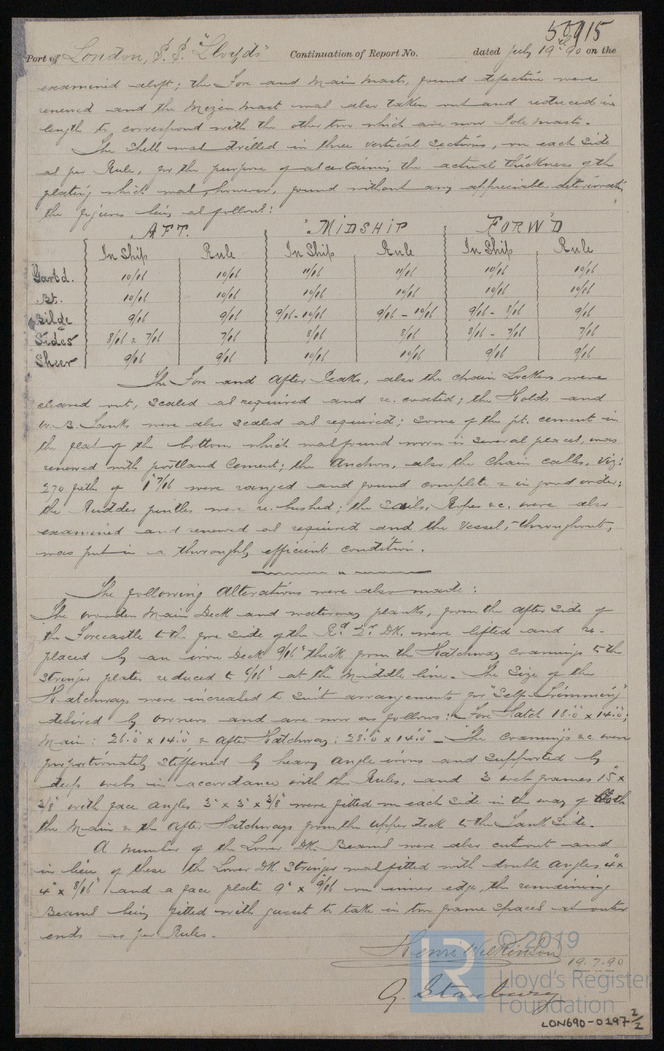 50915
Port of London, S.S. "Lloyds" Continuation of Report No. dated July 19th 90 on the
examined aloft; the Fore and Main Masts, found defective were
renewed and the Mizen Mast was also taken out and reduced in
length to correspond with the other two which are now Pole Masts.
The Shell was drilled in three vertical sections, on each side
as per Rule, for the purpose of ascertaining the actual thickness of the
plating which was, however, found without any appreciable deterioration
the figures being as follows:
AFT. MIDSHIP FORW'D
In Ship Rule In Ship Rule In Ship Rule
Garb'd. 10/16 10/16 11/16 11/16 10/16 10/16
Bt. 10/16 10/16 10/16 10/16 10/16 10/16
Bilge 9/16 9/16 9/16 - 10/16 9/16 - 10/16 9/16 - 8/16 9/16
Sides 8/16 & 7/16 7/16 8/16 8/16 8/16 - 7/16 7/16
Sheer 9/16 9/16 10/16 10/16 9/16 9/16
The Fore and After Peaks, also the chain Lockers were
cleaned out, scaled as required and re-coated; the Holds and
W.B. Tanks were also scaled as required; some of the pt. cement in
the flat of the bottom which was found worn in several places, was
renewed with portland Cement; the Anchors, also the chain cables, viz:
270 fath of 1 7/16 were ranged and found complete & in good order;
the Rudder pintles were re-bushed; the Sails, Ropes &c. were also
examined and renewed as required and the Vessel, throughout,
was put in a thoroughly efficient condition.
The following Alterations were also made:
The wooden Main Deck and waterway planks, from the after side of
the Forecastle to the fore side of the Rd. Qr. Dk. were lifted and re-
placed by an iron Deck 9/16" thick from the Hatchway coamings to the
Stringer plates reduced to 6/16" at the middle line. The Size of the
Hatchways were increased to suit arrangements for "Self-Trimming"
desired by owners and are now as follows: Fore Hatch 18'.0" x 14'.0";
Main: 26'.0" x 14'.0" & After Hatchway: 28'.0" x 14'.0" - The coamings &c were
proportionately stiffened by heavy angle irons and supported by
deep webs in accordance with the Rules, and 3 web frames 15" x
3/8" with face angles 3" x 3" x 3/8" were fitted on each side in the way of both
the Main & the After Hatchways from the upper Deck to the Tank Side.
A number of the Lower Dk. Beams were also cut out and
in lieu of these the Lower Dk Stringer was fitted with double Angles 4" x
4" x 8/16" and a face plate 9" x 9/16 on inner edge, the remaining
Beams being fitted with gusset to take in two frame spaces at outer
ends as per Rules.
Henri Wilkinson
19.7.90
G. Stanbury
© 2019
LR
Lloyd's Register
Foundation
LON690-0197 2/2